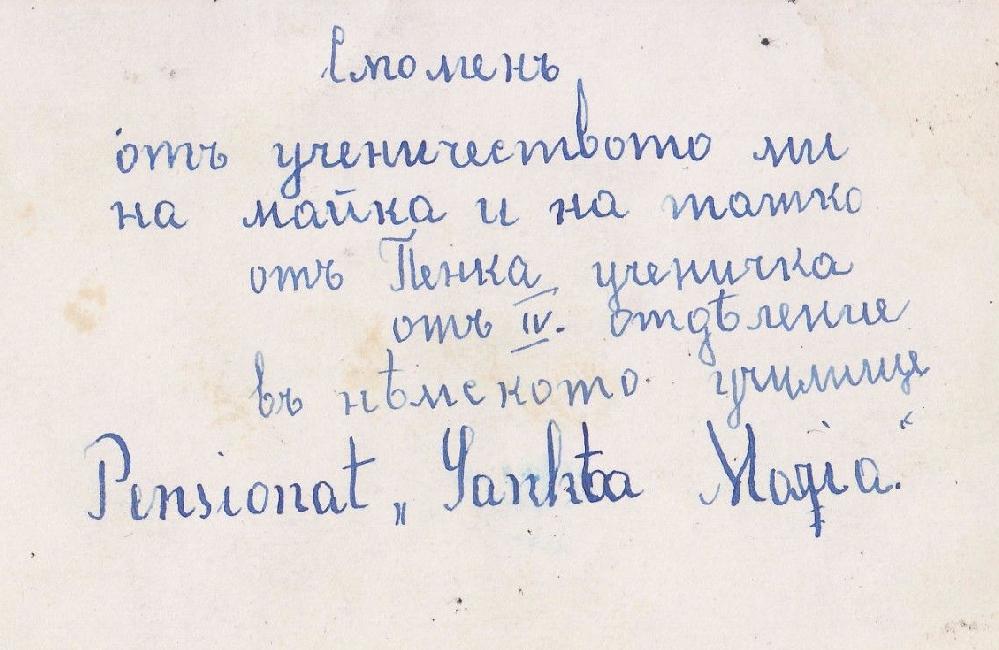 Споменъ
отъ ученичеството ми
на майка и на татко
отъ Пенка ученичка
отъ IV. отдѣление
въ нѣмското училище
Pensionat „Sankta Maria.“